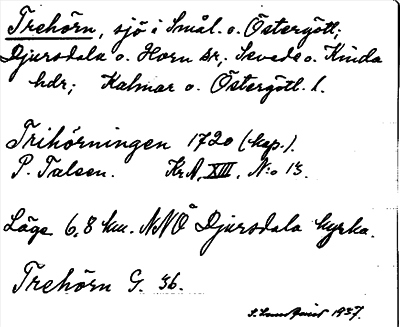 Trehörn, sjö i Smål. o. Östergötl;
Djursdala o. Horn sr, Sevede o. Kinda
hdr; Kalmar o. Östergötl. l.
Trihörningen 1720 (kop.).
P. Talsen. Kr.A. XIII, N:o 13.
Läge 6,8 km. NNÖ Djursdala kyrka.
Trehörn G. 36.
1937.